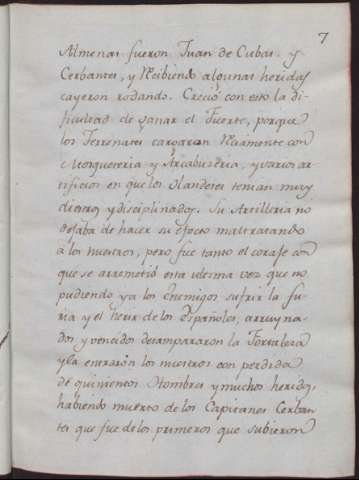 7
Almenas fueron Juan de Cubas, y
Cerbantes, y Recibiendo algunas heridas
cayeron rodando. Creció con esto la di-
ficultad de ganar el Fuerte, porque
los Terrenates cargaron Reciamente con
Mosqueteria y Arcabuzeria, y varios ar-
tificios en que los Olandeses tenian muy
diestros y disciplinados. Su Artilleria no
dejaba de hacer su efecto maltratando
à los nuestros, pero fue tanto el coraje con
que se arremetió esta ultima vez que no
pudiendo ya los Enemigos sufrir la fu-
ria y el herir de los Españoles, arruyna-
dos y vencidos desampararon la Fortaleza
y la entraron los nuestros con perdida
de quinientos Hombres y muchos heridos,
habiendo muerto de los Capitanes Cerban-
tes que fue de los primeros que subieron